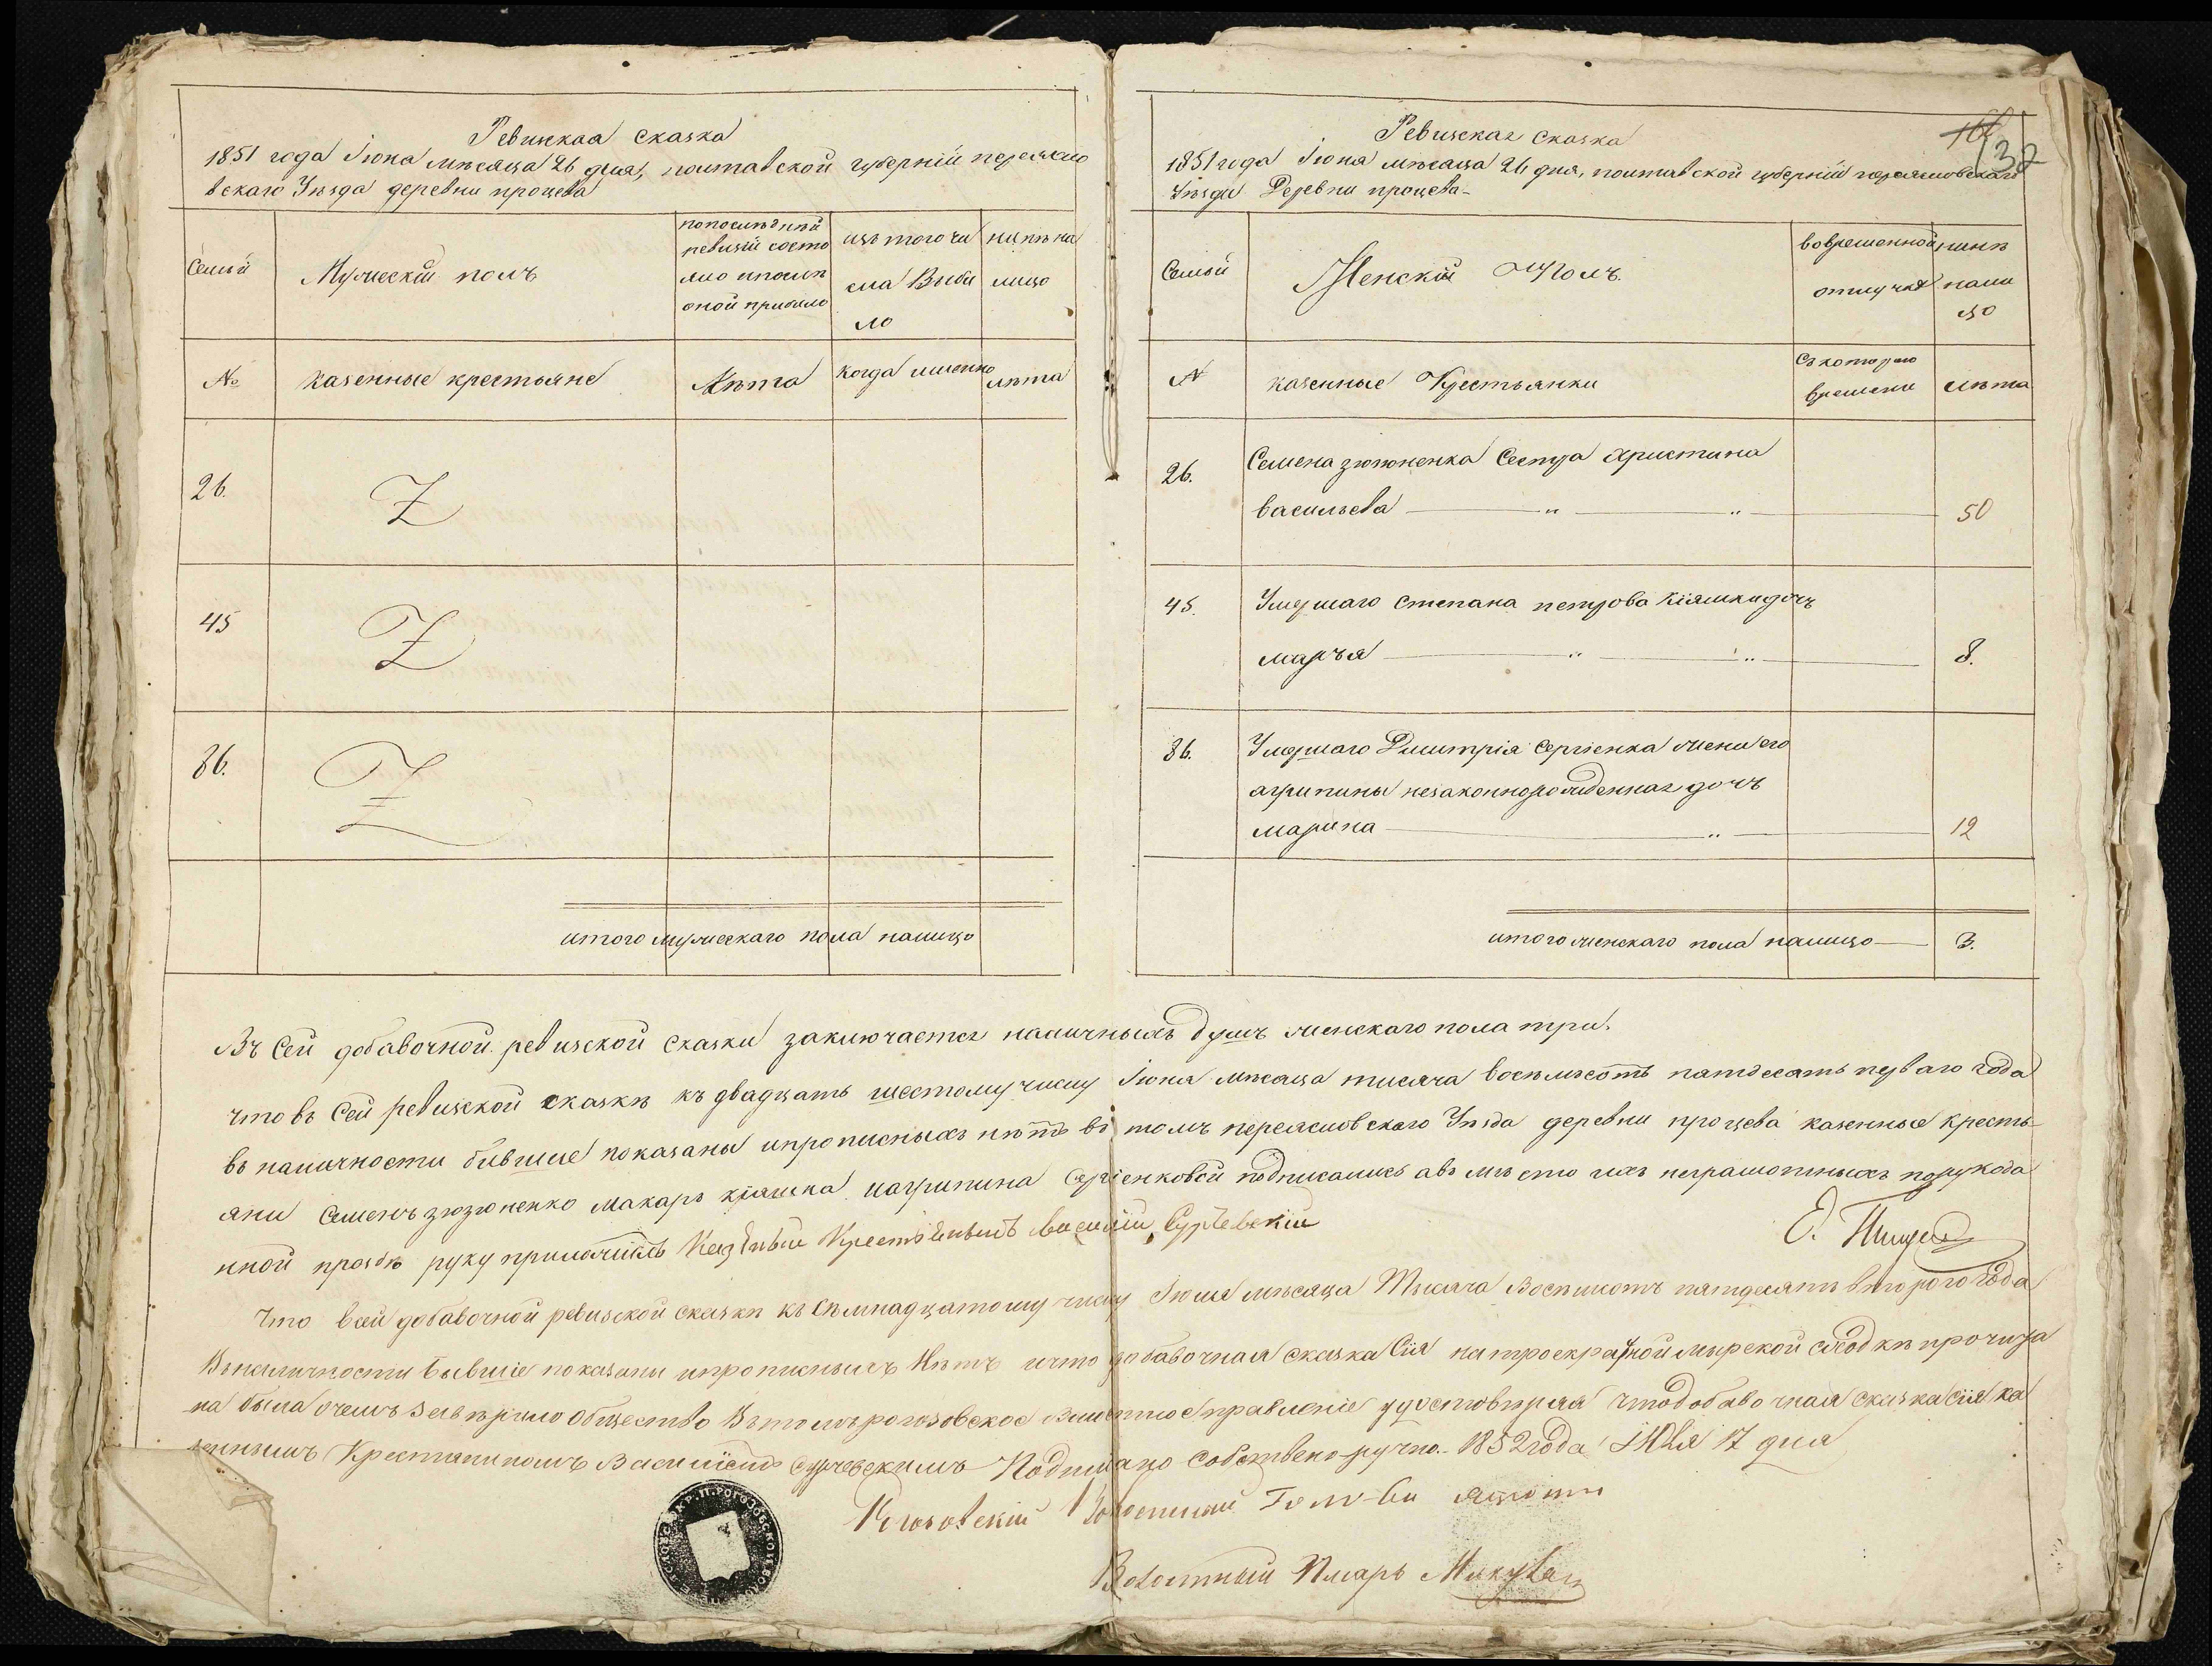 Ревизкая Сказка
1851 года Іюня мѣсяца 26 дня, полтавской губерніи переясло
вскаго Уѣзда деревни процева
Семьи
Мужескій полъ
попослѣдней
ревизіи состо
яло ипослѣ
оной прибыло
изъ того чи
сла Выбы
ло
нынѣ на
лицо
№
казенные крестьяне
Лѣта
когда именно
лѣта
26.
45
86.
итого мужескаго пола налицо
Ревизская Сказка
132
1851 года Іюня мѣсяца 26 дня, полтавской губерніи переясловскаго
Уѣзда Деревни процева
Семьи
Женскій Полъ.
вовременной
отлучкѣ
нынѣ
нали
цо
№
казенные Крестьянки
Съ котораго
времени
Лѣта
26.
Семена зюзюненка Сестра христина
васильева — „ — „ — 50
45.
Умершаго степана петрова кіяшки дочь
марья — „ — „ — 8.
86.
Умершаго Дмитрія Сергіенка жены его
агрипины незаконнорожденная дочь
марина — „ — 12
итого женскаго пола налицо — 3.
Въ Сей добавочной ревизской сказки заключается наличныхъ душъ женскаго пола три.
что въ Сей ревизской сказкѣ къ двадцать шестому числу Іюня мѣсяца тисяча восѣмьсотъ пятдесятъ перваго года
въ наличности бывшие показаны ипрописныхъ нѣтъ въ томъ переясловскаго Уѣзда деревни процева казенные кресть-
яни Семенъ зюзюненко макаръ кіяшка иагрипина Сергіенковой подписались авъ мѣсто ихъ неграмотныхъ порукода
нной прозбѣ руку приложилъ Казѣнный Крестьянинъ Василий Суржевскій
Что всей добавочной ревизской сказки къ Семнадцатому числу Іюля мѣсяца Тысяча Восѣмсотъ пятдесятъ второго года
Вналичности бывшіе показаны ипрописныхъ Нѣтъ ичто добавочная сказка Сія на троекратной мырской сходкѣ прочита
на была очемъ Завѣрило общество Въ томъ рогозовское Волостное правленіе удостовѣряя что добавочная сказка сія ка
зеннымъ Крестьяниномъ Василіемъ Суржевскимъ Подписано Собственоручно. 1852 года ІЮля 17 дня
Рогозовскій Волостный Голова
Волостный Писарь